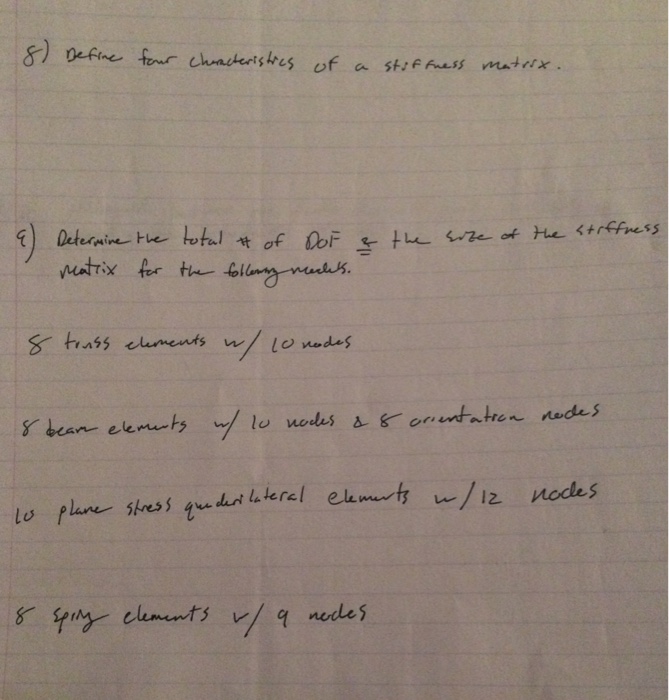 8) Define four characteristics of a stiffness matrix.
9) Determine the total # of DOF & the size of the stiffness
matrix for the following models.
8 truss elements w/ 10 nodes
8 beam elements w/ 10 nodes & 8 orientation nodes
10 plane stress quadrilateral elements w/ 12 nodes
8 spring elements w/ 9 nodes